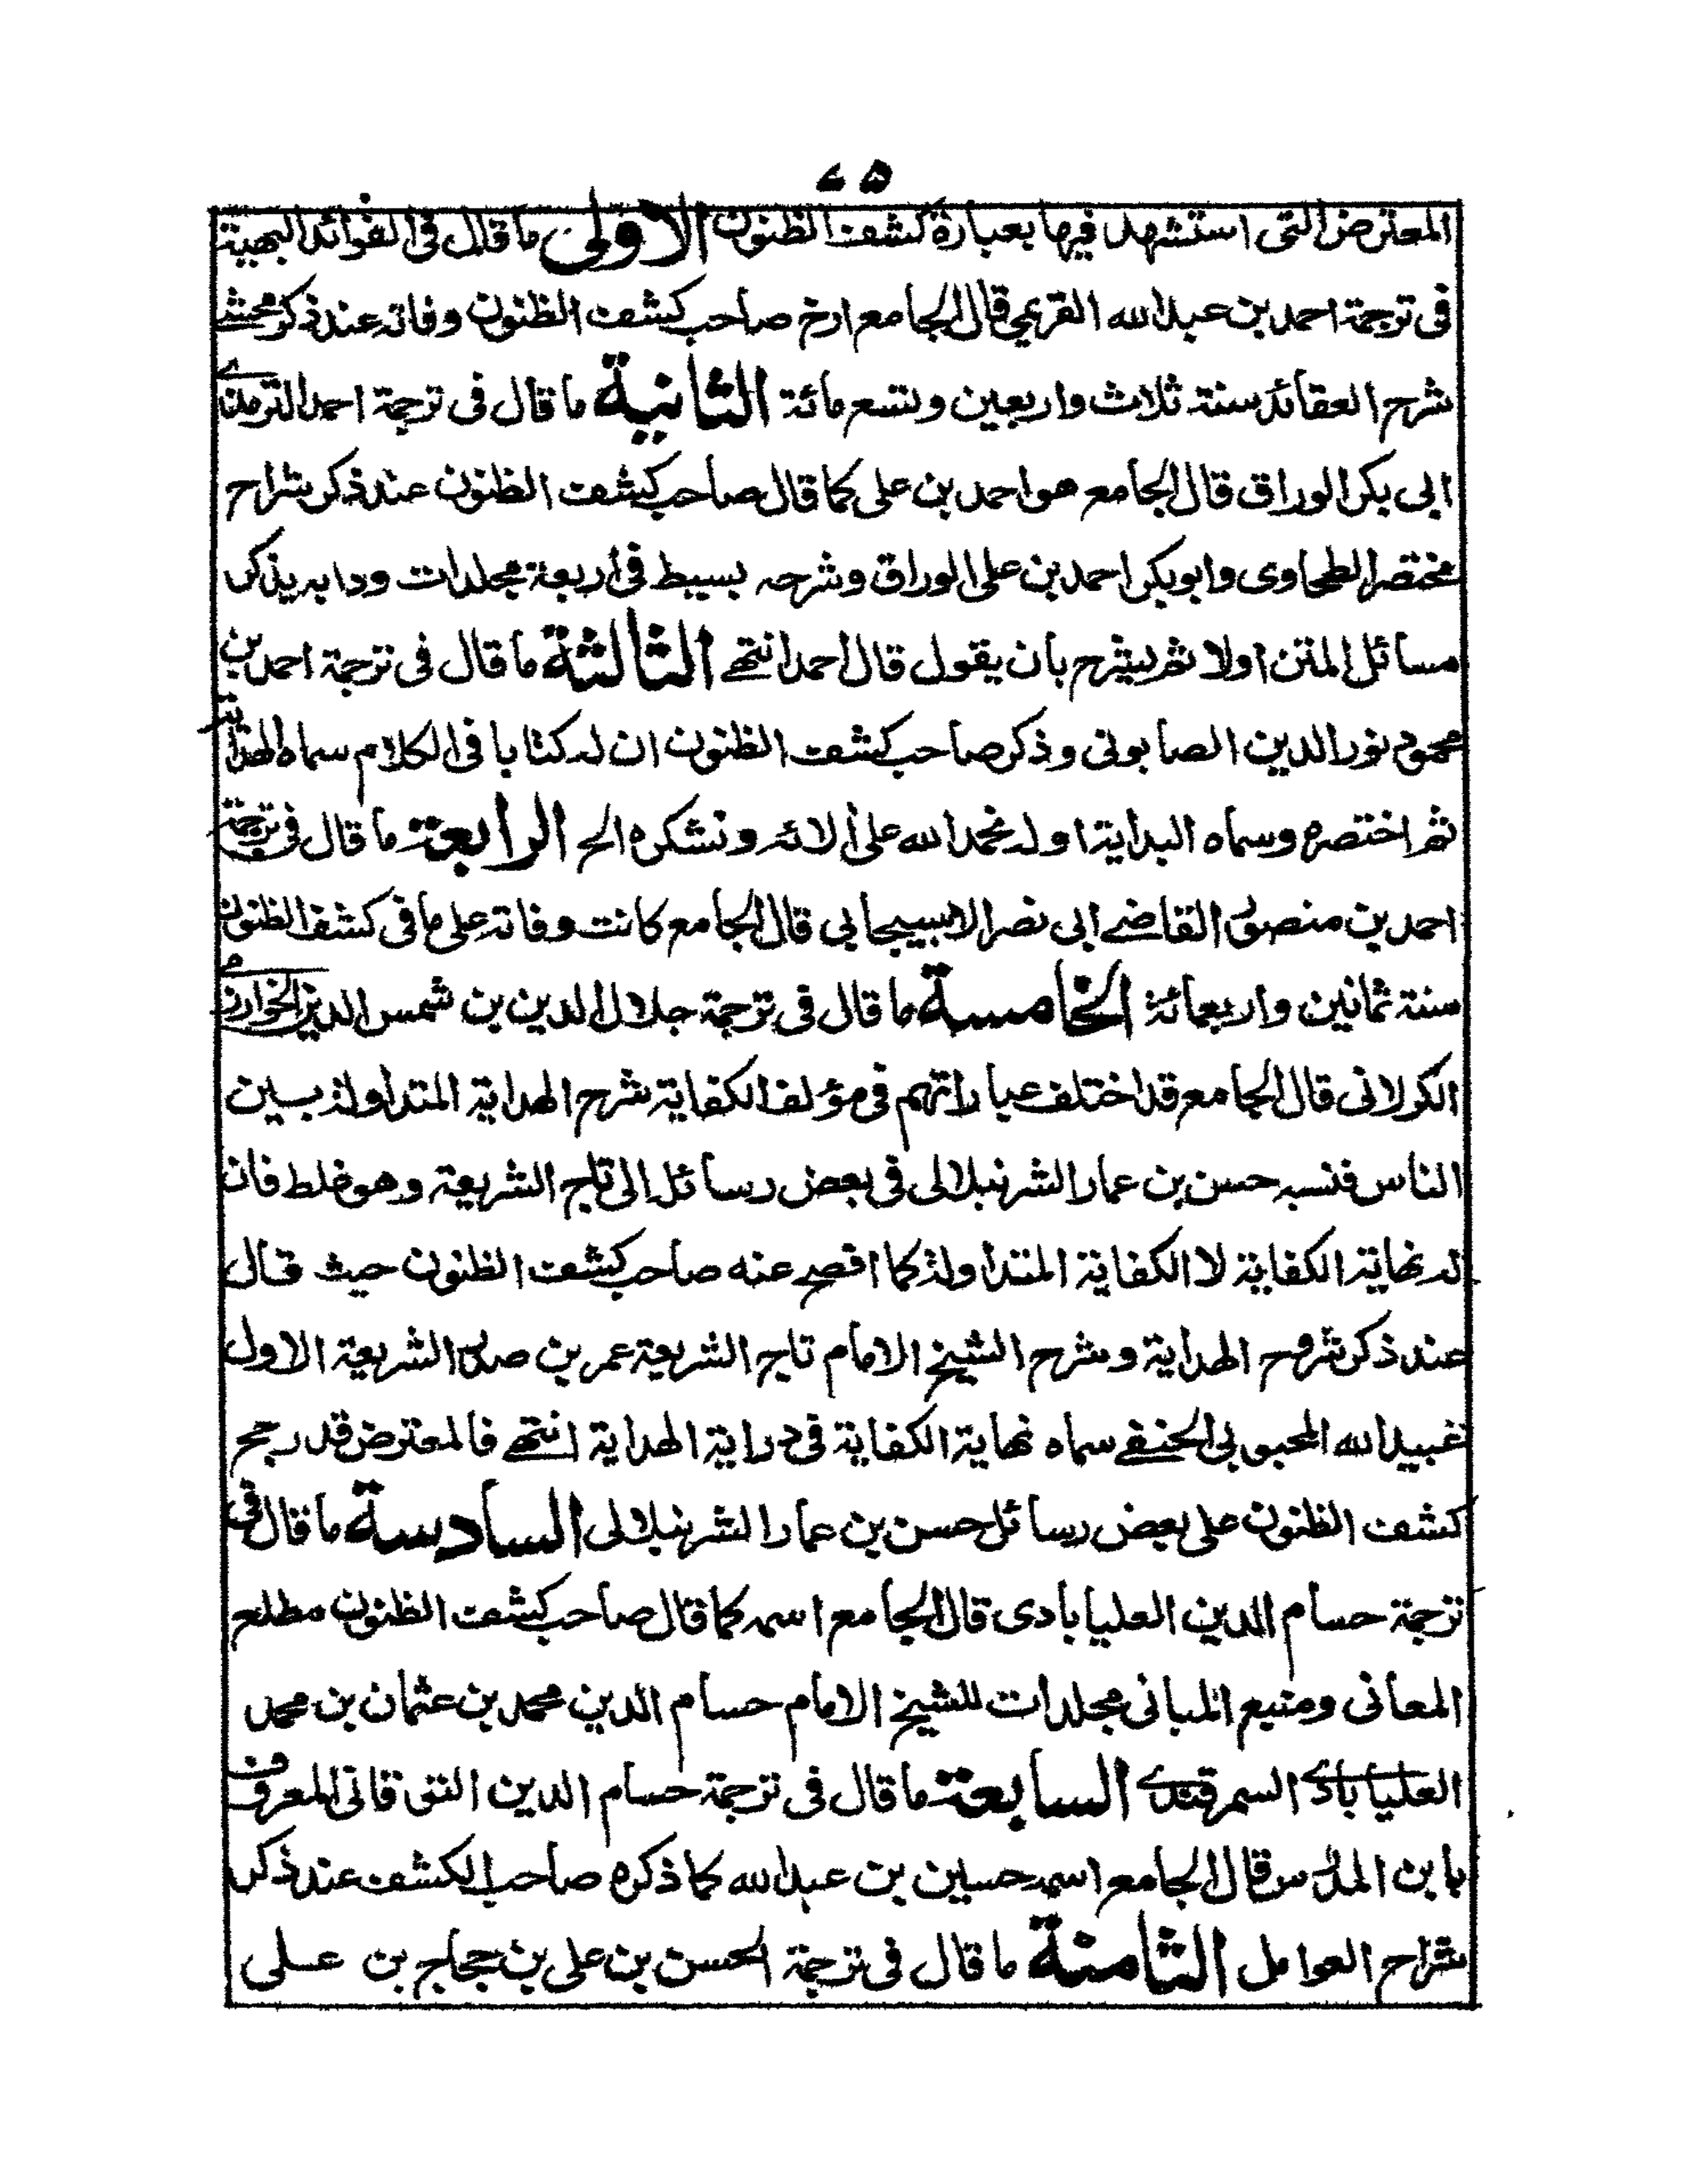 المعترض التى استشهد فيها بعبارة كشف الظنون الاولى ما قال فى الفوائد البهية
فى ترجمة احمد بن عبد الله القريمى قال الجامع ارخ صاحب كشف الظنون وفاته عند ذكر محشے
شرح العقائد سنة ثلاث واربعين وتسع مائة الثانية ما قال فى ترجمة احمد الترمذے
ابى بكر الوراق قال الجامع هو احمد بن على كما قال صاحب كشف الظنون عند ذكر شراح
مختصر الطحاوى وابو بكر احمد بن على الوراق وشرحه بسيط فى اربعة مجلدات ودابه يذكر
مسائل المتن اولا ثم يشرح بان يقول قال احمد انتهے الثالثة ما قال فى ترجمة احمد بن
محمود نور الدين الصابونى وذكر صاحب كشف الظنون ان له كتابا فى الكلام سماه الهداية
ثم اختصره وسماه البداية اوله نحمد الله على آلائه ونشكره الخ الرابعة ما قال فى ترجمة
احمد بن منصور القاضے ابى نصر الاسبيجابى قال الجامع كانت وفاته على ما فى كشف الظنون
سنة ثمانين واربعمائة الخامسة ما قال فى ترجمة جلال الدين بن شمس الدين الخوارزمے
الكولانى قال الجامع قد اختلف عباراتهم فى مؤلف الكفاية شرح الهداية المتداولة بين
الناس فنسبه حسن بن عمار الشرنبلالى فى بعض رسائله الى تاج الشريعة وهو غلط فان
له نهاية الكفاية لا الكفاية المتداولة كما افصح عنه صاحب كشف الظنون حيث قال
عند ذكر شروح الهداية وشرح الشيخ الامام تاج الشريعة عمر بن صدر الشريعة الاول
عبيد الله المحبوبى الحنفے سماه نهاية الكفاية فى دراية الهداية انتهے فالمعترض قد رجح
كشف الظنون على بعض رسائل حسن بن عمار الشرنبلالى السادسة ما قال فى
ترجمة حسام الدين العليابادى قال الجامع اسمه كما قال صاحب كشف الظنون مطلع
المعانى ومنبع المبانى مجلدات للشيخ الامام حسام الدين محمد بن عثمان بن محمد
العليابادے السمرقندے السابعة ما قال فى ترجمة حسام الدين التوقاتى المعروف
بابن المداس قال الجامع اسمه حسين بن عبد الله كما ذكره صاحب الكشف عند ذكر
شراح العوامل الثامنة ما قال فى ترجمة الحسن بن على بن حجاج بن على